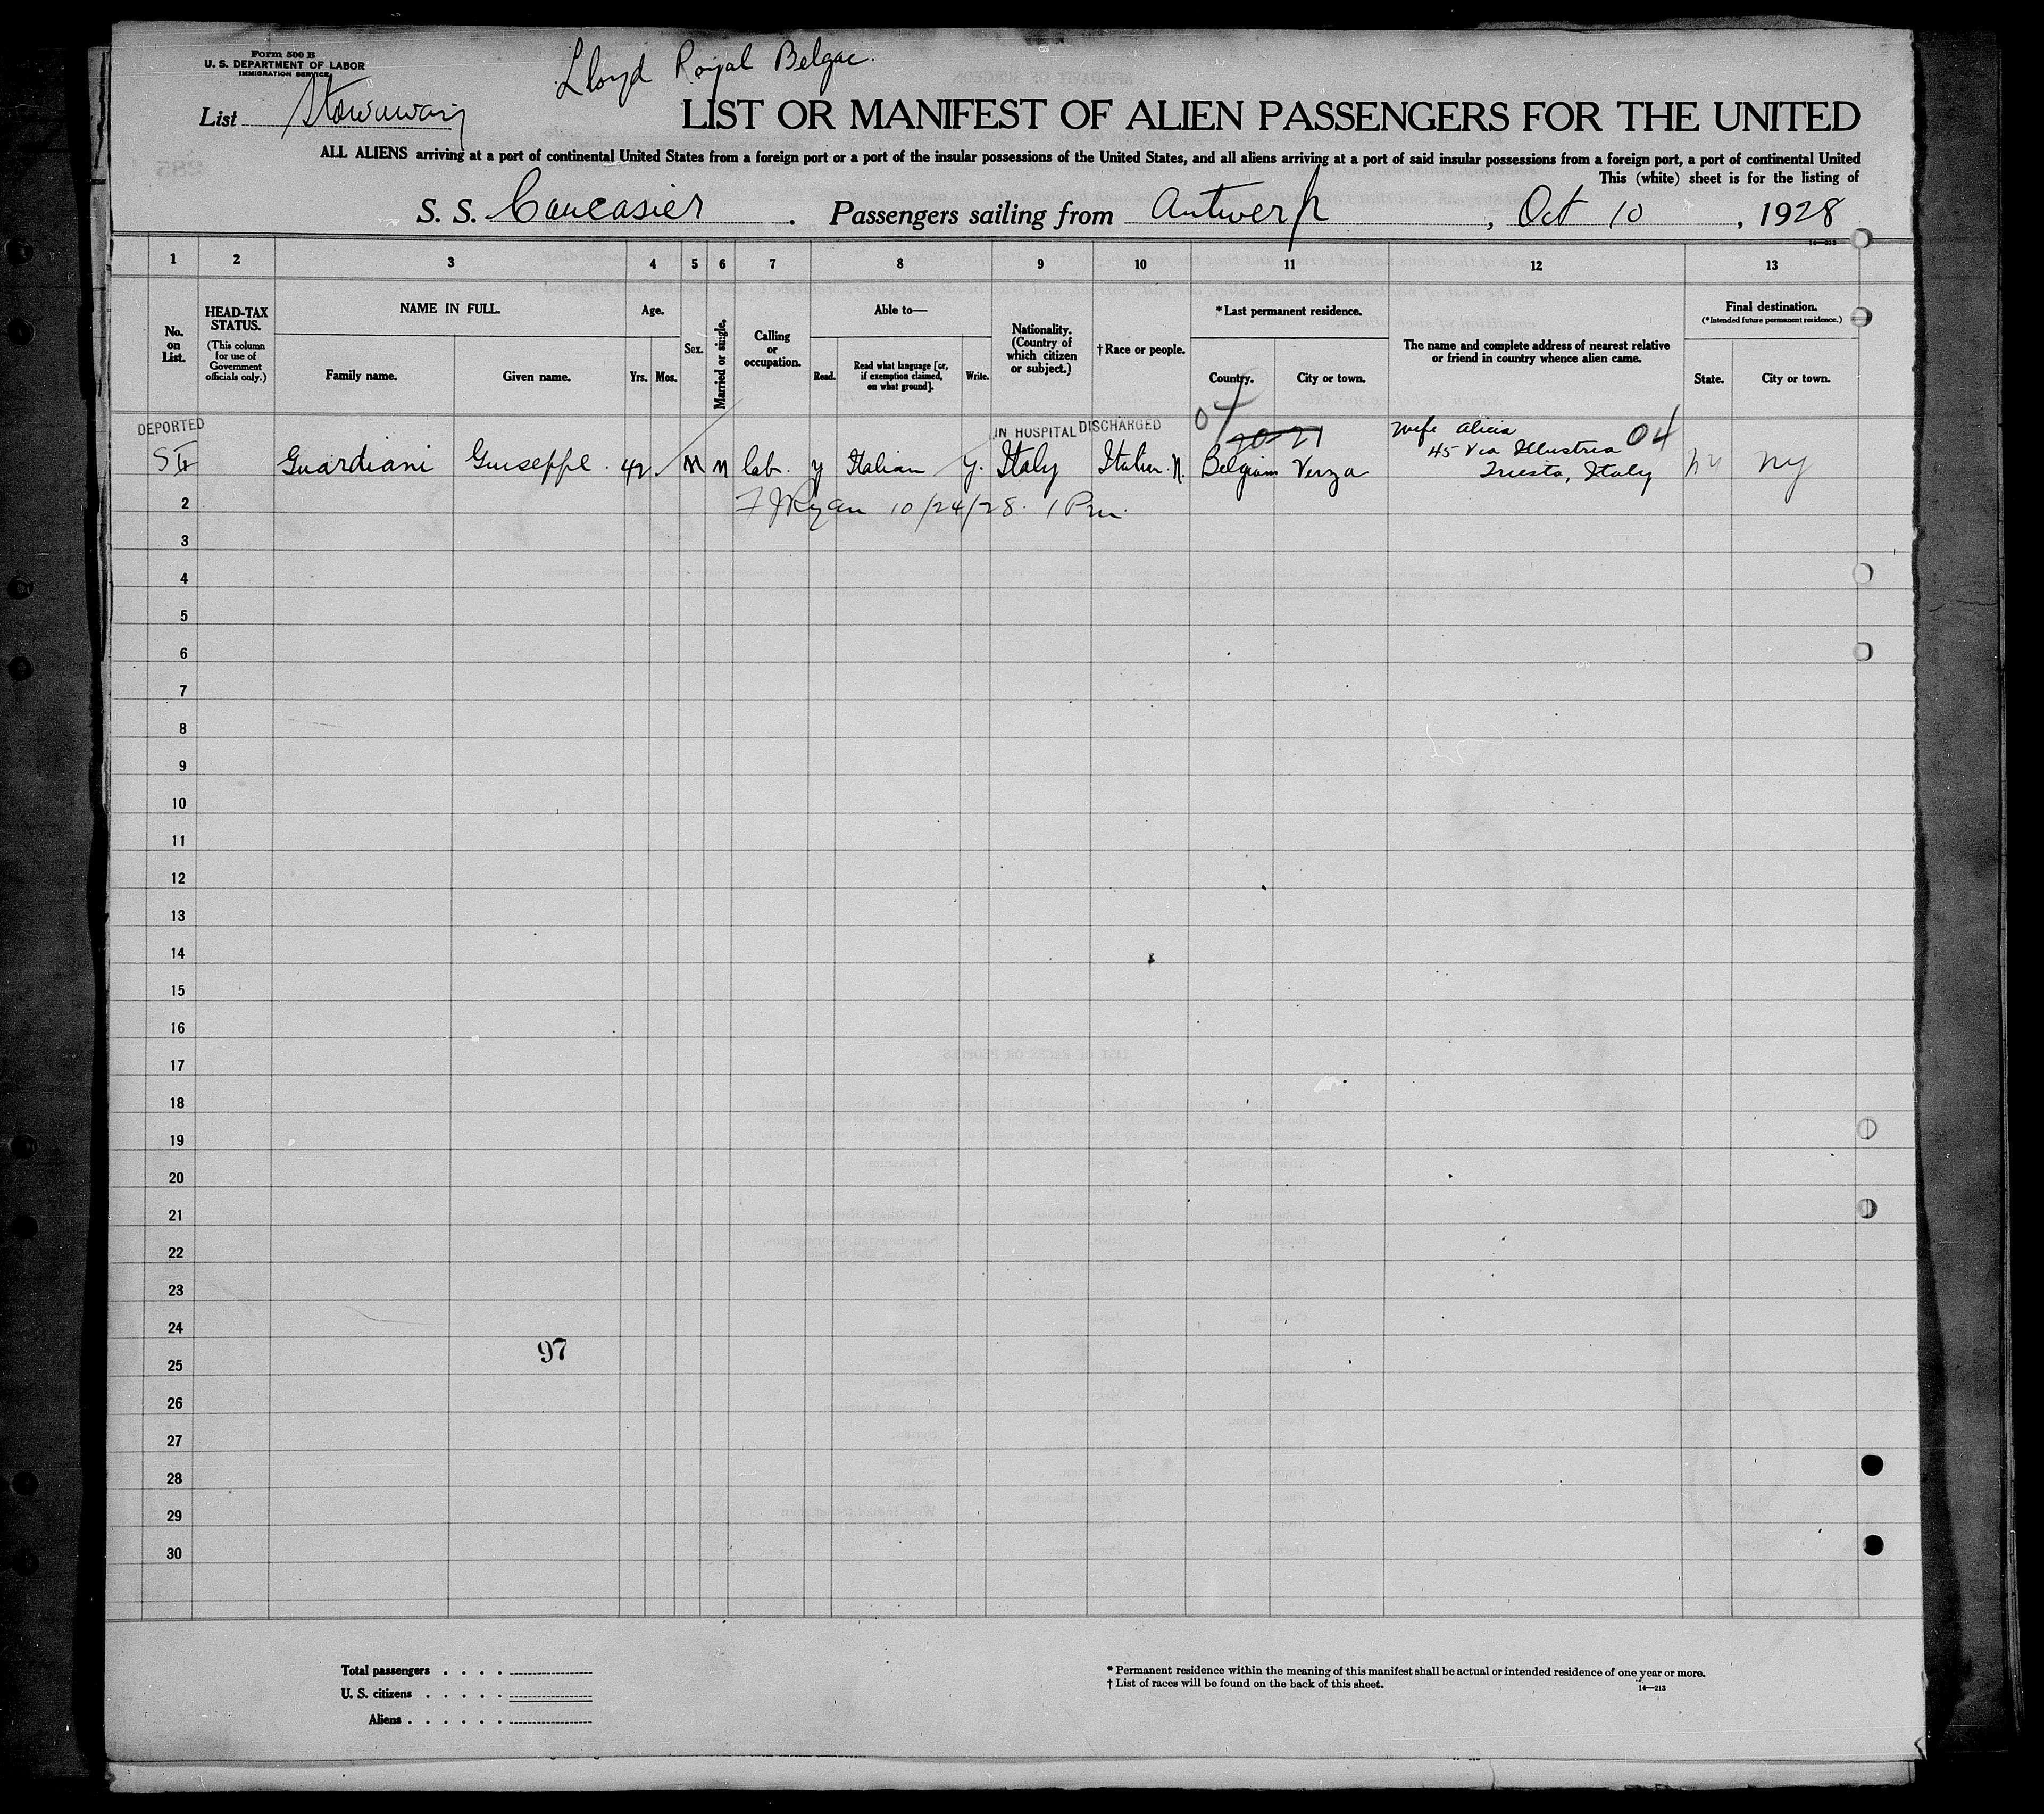 Form 500 B
U. S. DEPARTMENT OF LABOR
IMMIGRATION SERVICE
Lloyd Royal Belgae.
List Stowaway
LIST OR MANIFEST OF ALIEN PASSENGERS FOR THE UNITED
ALL ALIENS arriving at a port of continental United States from a foreign port or a port of the insular possessions of the United States, and all aliens arriving at a port of said insular possessions from a foreign port, a port of continental United
This (white) sheet is for the listing of
S. S. Caucasier. Passengers sailing from Antwerp, Oct 10, 1928
14—213
1 2 3 4 5 6 7 8 9 10 11 12 13
No. on List.
HEAD-TAX STATUS.
(This column for use of Government officials only.)
NAME IN FULL.
Family name. Given name.
Age.
Yrs. Mos.
Sex.
Married or single.
Calling or occupation.
Able to—
Read. Read what language [or, if exemption claimed, on what ground]. Write.
Nationality. (Country of which citizen or subject.)
† Race or people.
* Last permanent residence.
Country. City or town.
The name and complete address of nearest relative or friend in country whence alien came.
Final destination.
(* Intended future permanent residence.)
State. City or town.
DEPORTED IN HOSPITAL DISCHARGED 04 20-21 wife Alicia 04
45 Via Illustria
Guardiani Guiseppe. 42 M M lab. y Italian y. Italy Italian N. Belgium Verza Triesta, Italy NY NY
2 F J Ryan 10/24/28. 1 Pm.
3
4
5
6
7
8
9
10
11
12
13
14
15
16
17
18
19
20
21
22
23
24
97
25
26
27
28
29
30
Total passengers . . . .
U. S. citizens . . . . .
Aliens . . . . . .
* Permanent residence within the meaning of this manifest shall be actual or intended residence of one year or more.
† List of races will be found on the back of this sheet.
14—213